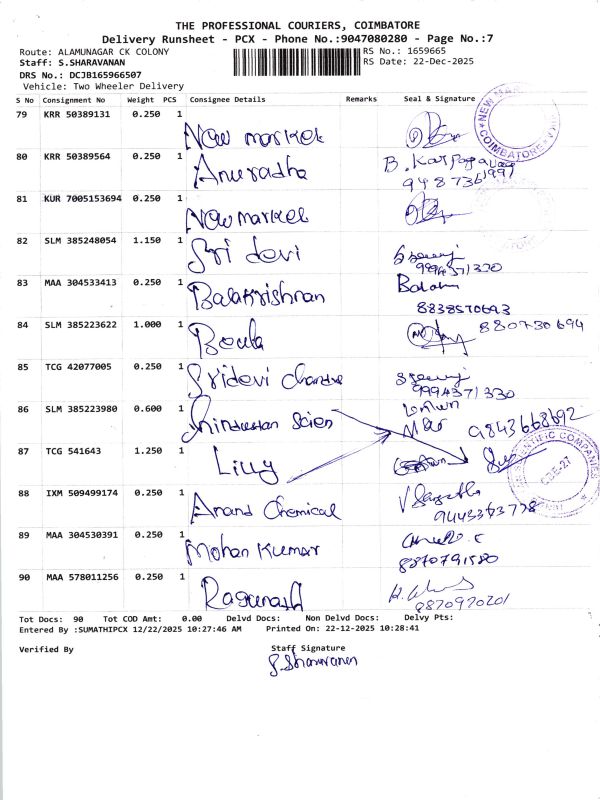 THE PROFESSIONAL COURIERS, COIMBATORE
Delivery Runsheet - PCX - Phone No.:9047080280 - Page No.:7
Route: ALAMUNAGAR CK COLONY
RS No.: 1659665
Staff: S.SHARAVANAN
RS Date: 22-Dec-2025
DRS No.: DCJB165966507
Vehicle: Two Wheeler Delivery
S No Consignment No Weight PCS Consignee Details Remarks Seal & Signature
79 KRR 50389131 0.250 1 New market
80 KRR 50389564 0.250 1 Anuradha B. Karpaga
81 KUR 7005153694 0.250 1 New market
82 SLM 385248054 1.150 1 Sri devi
9994371330
83 MAA 304533413 0.250 1 Balakrishnan
8838570693
84 SLM 385223622 1.000 1
85 TCG 42077005 0.250 1 Sridevi
9994371330
86 SLM 385223980 0.600 1 Hindustan Scien 9843668692
87 TCG 541643 1.250 1 Lilly
88 IXM 509499174 0.250 1 Anand Chemical
9443363778
89 MAA 304530391 0.250 1 Mohan Kumar
8870791580
90 MAA 578011256 0.250 1
9870970201
Tot Docs: 90 Tot COD Amt: 0.00 Delvd Docs: Non Delvd Docs: Delvy Pts:
Entered By :SUMATHIPCX 12/22/2025 10:27:46 AM Printed On: 22-12-2025 10:28:41
Verified By Staff Signature
S. Sharavanan